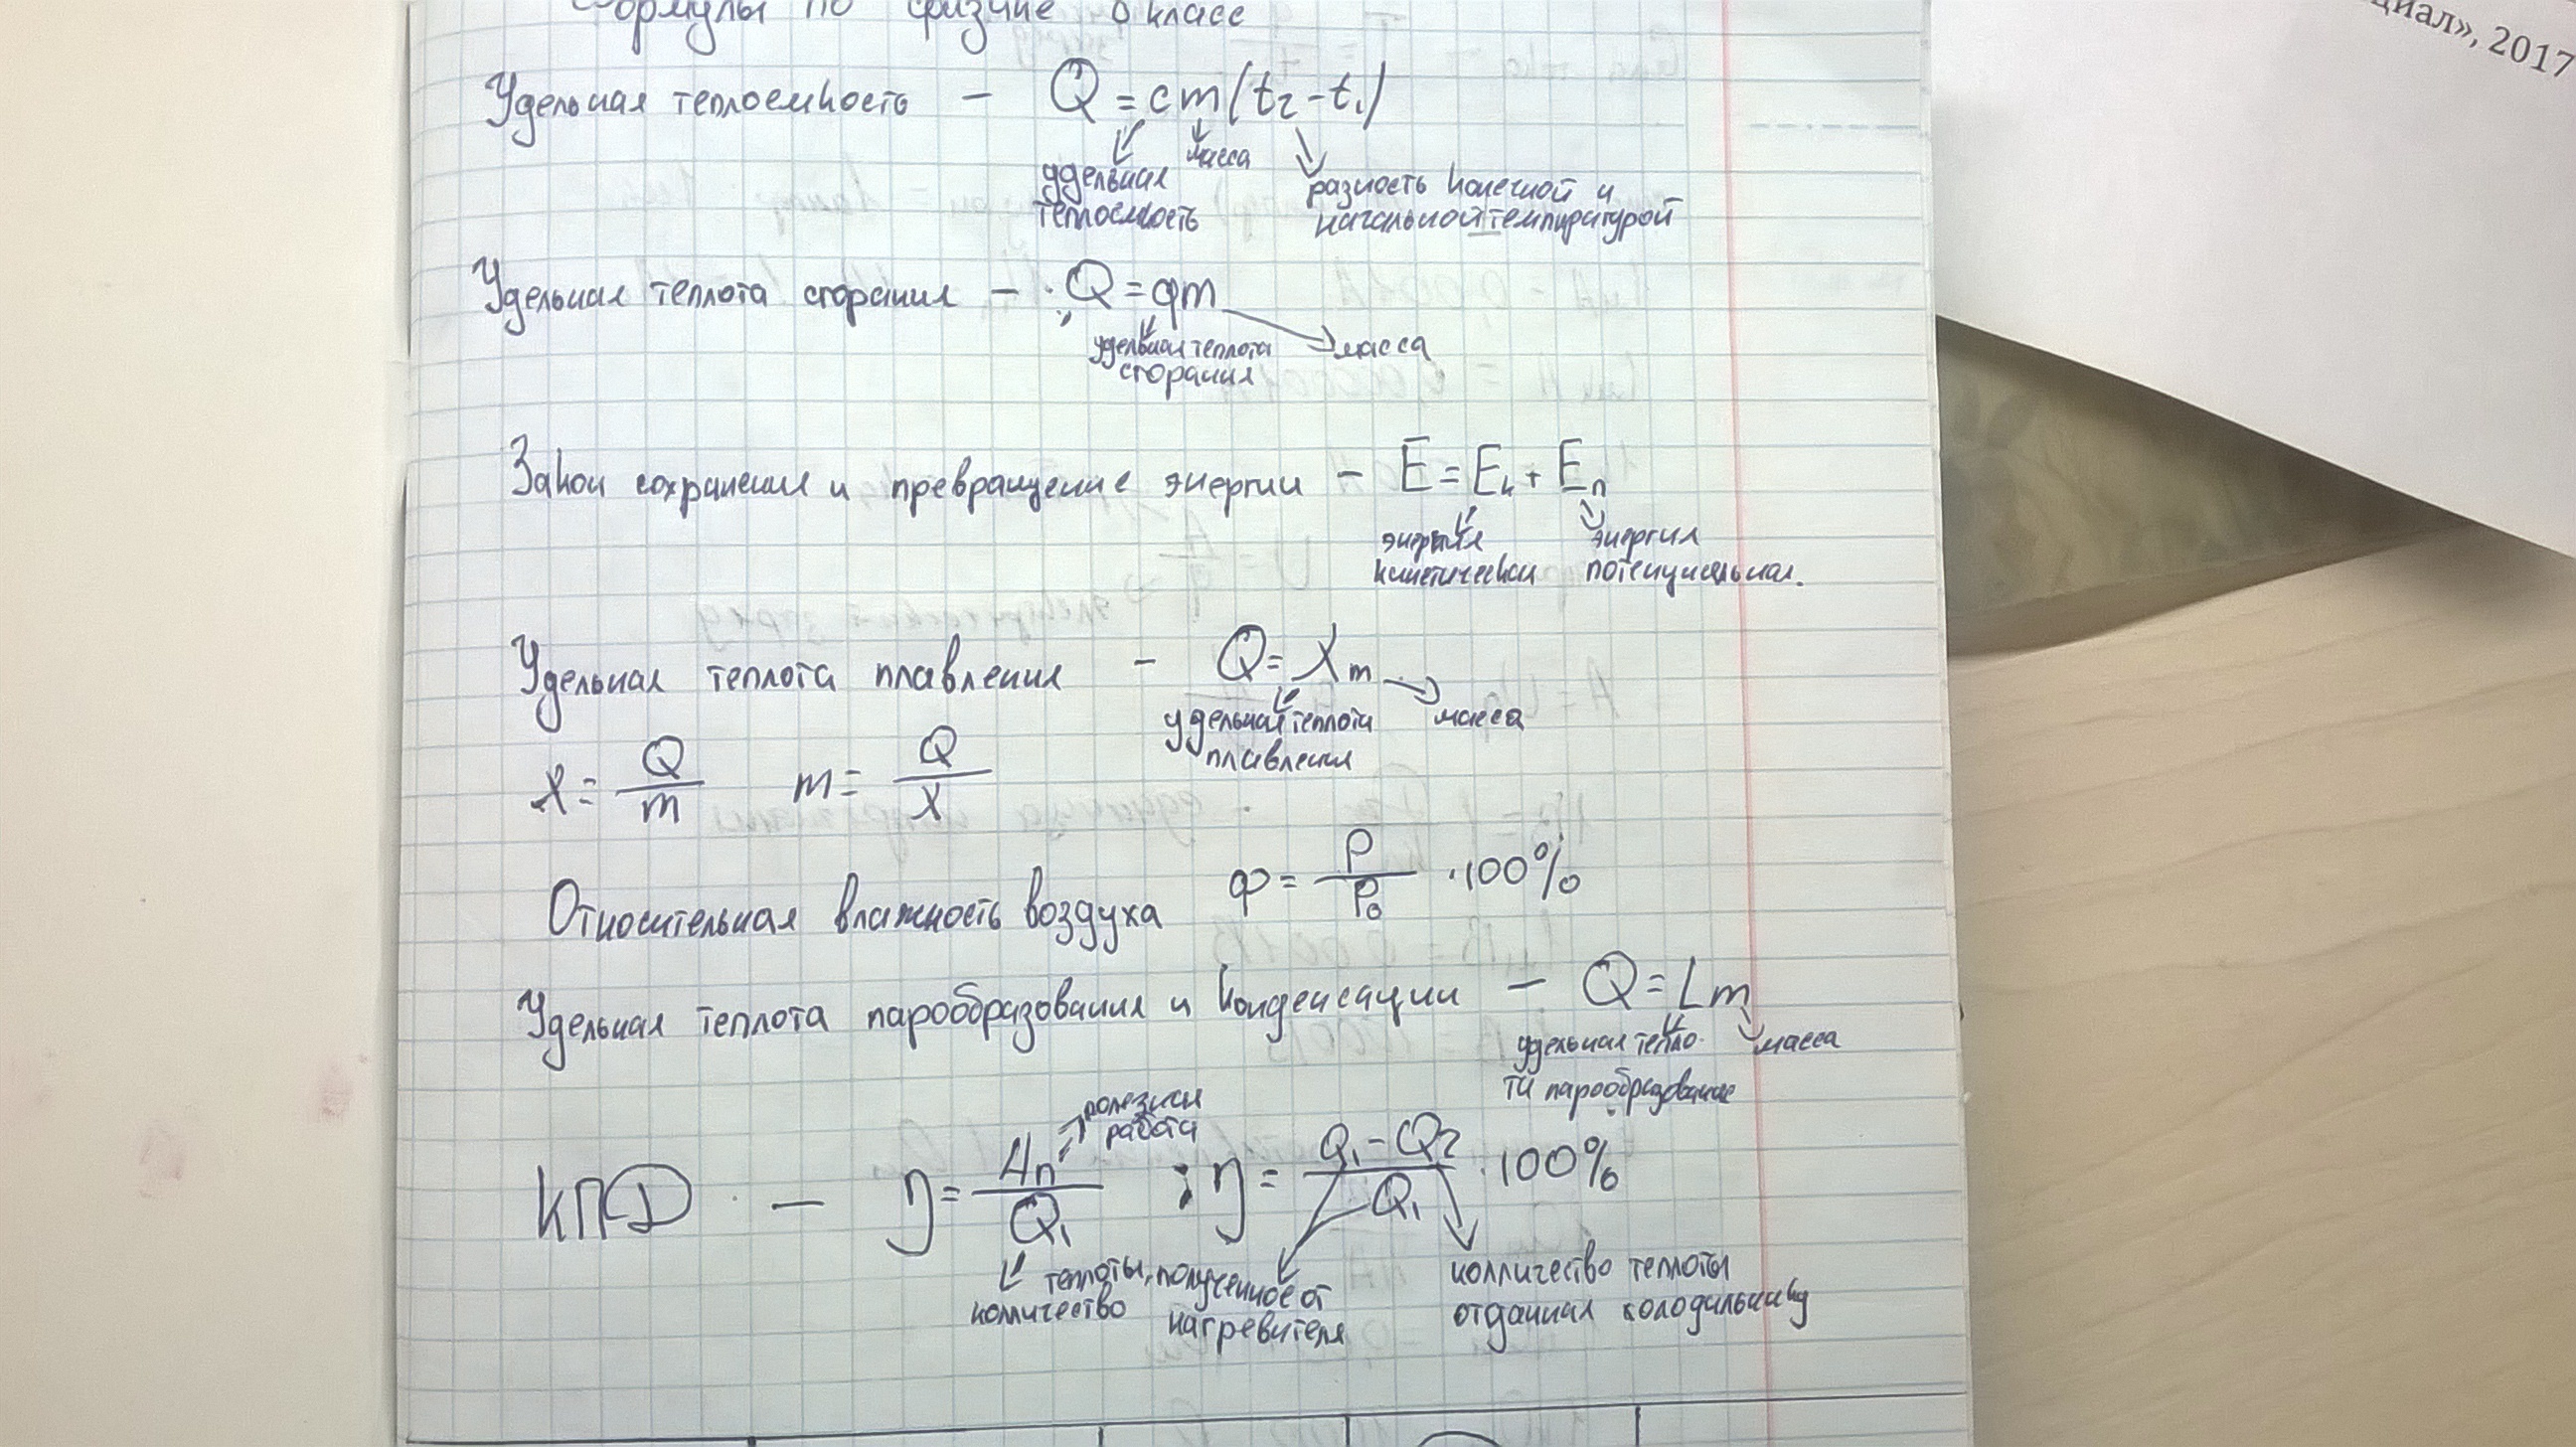 Формулы по физике 8 класс
циал», 2017
Удельная теплоемкость – Q = cm(t₂ - t₁)
масса
удельная теплоемкость
разность конечной и начальной температурой
Удельная теплота сгорания – Q = qm
удельная теплота сгорания
масса
Закон сохранения и превращение энергии – E = Eк + Eп
энергия кинетическая
энергия потенциальная.
Удельная теплота плавления – Q = λm
удельная теплота плавления
масса
λ = Q/m   m = Q/λ
Относительная влажность воздуха φ = P/P₀ · 100%
Удельная теплота парообразования и конденсации – Q = Lm
удельная тепло-
та парообразование
масса
полезная работа
КПД – η = Aп/Q₁ ; η = Q₁ - Q₂/Q₁ · 100%
колличество теплоты, полученное от нагревителя
колличество теплоты
отданная холодильнику